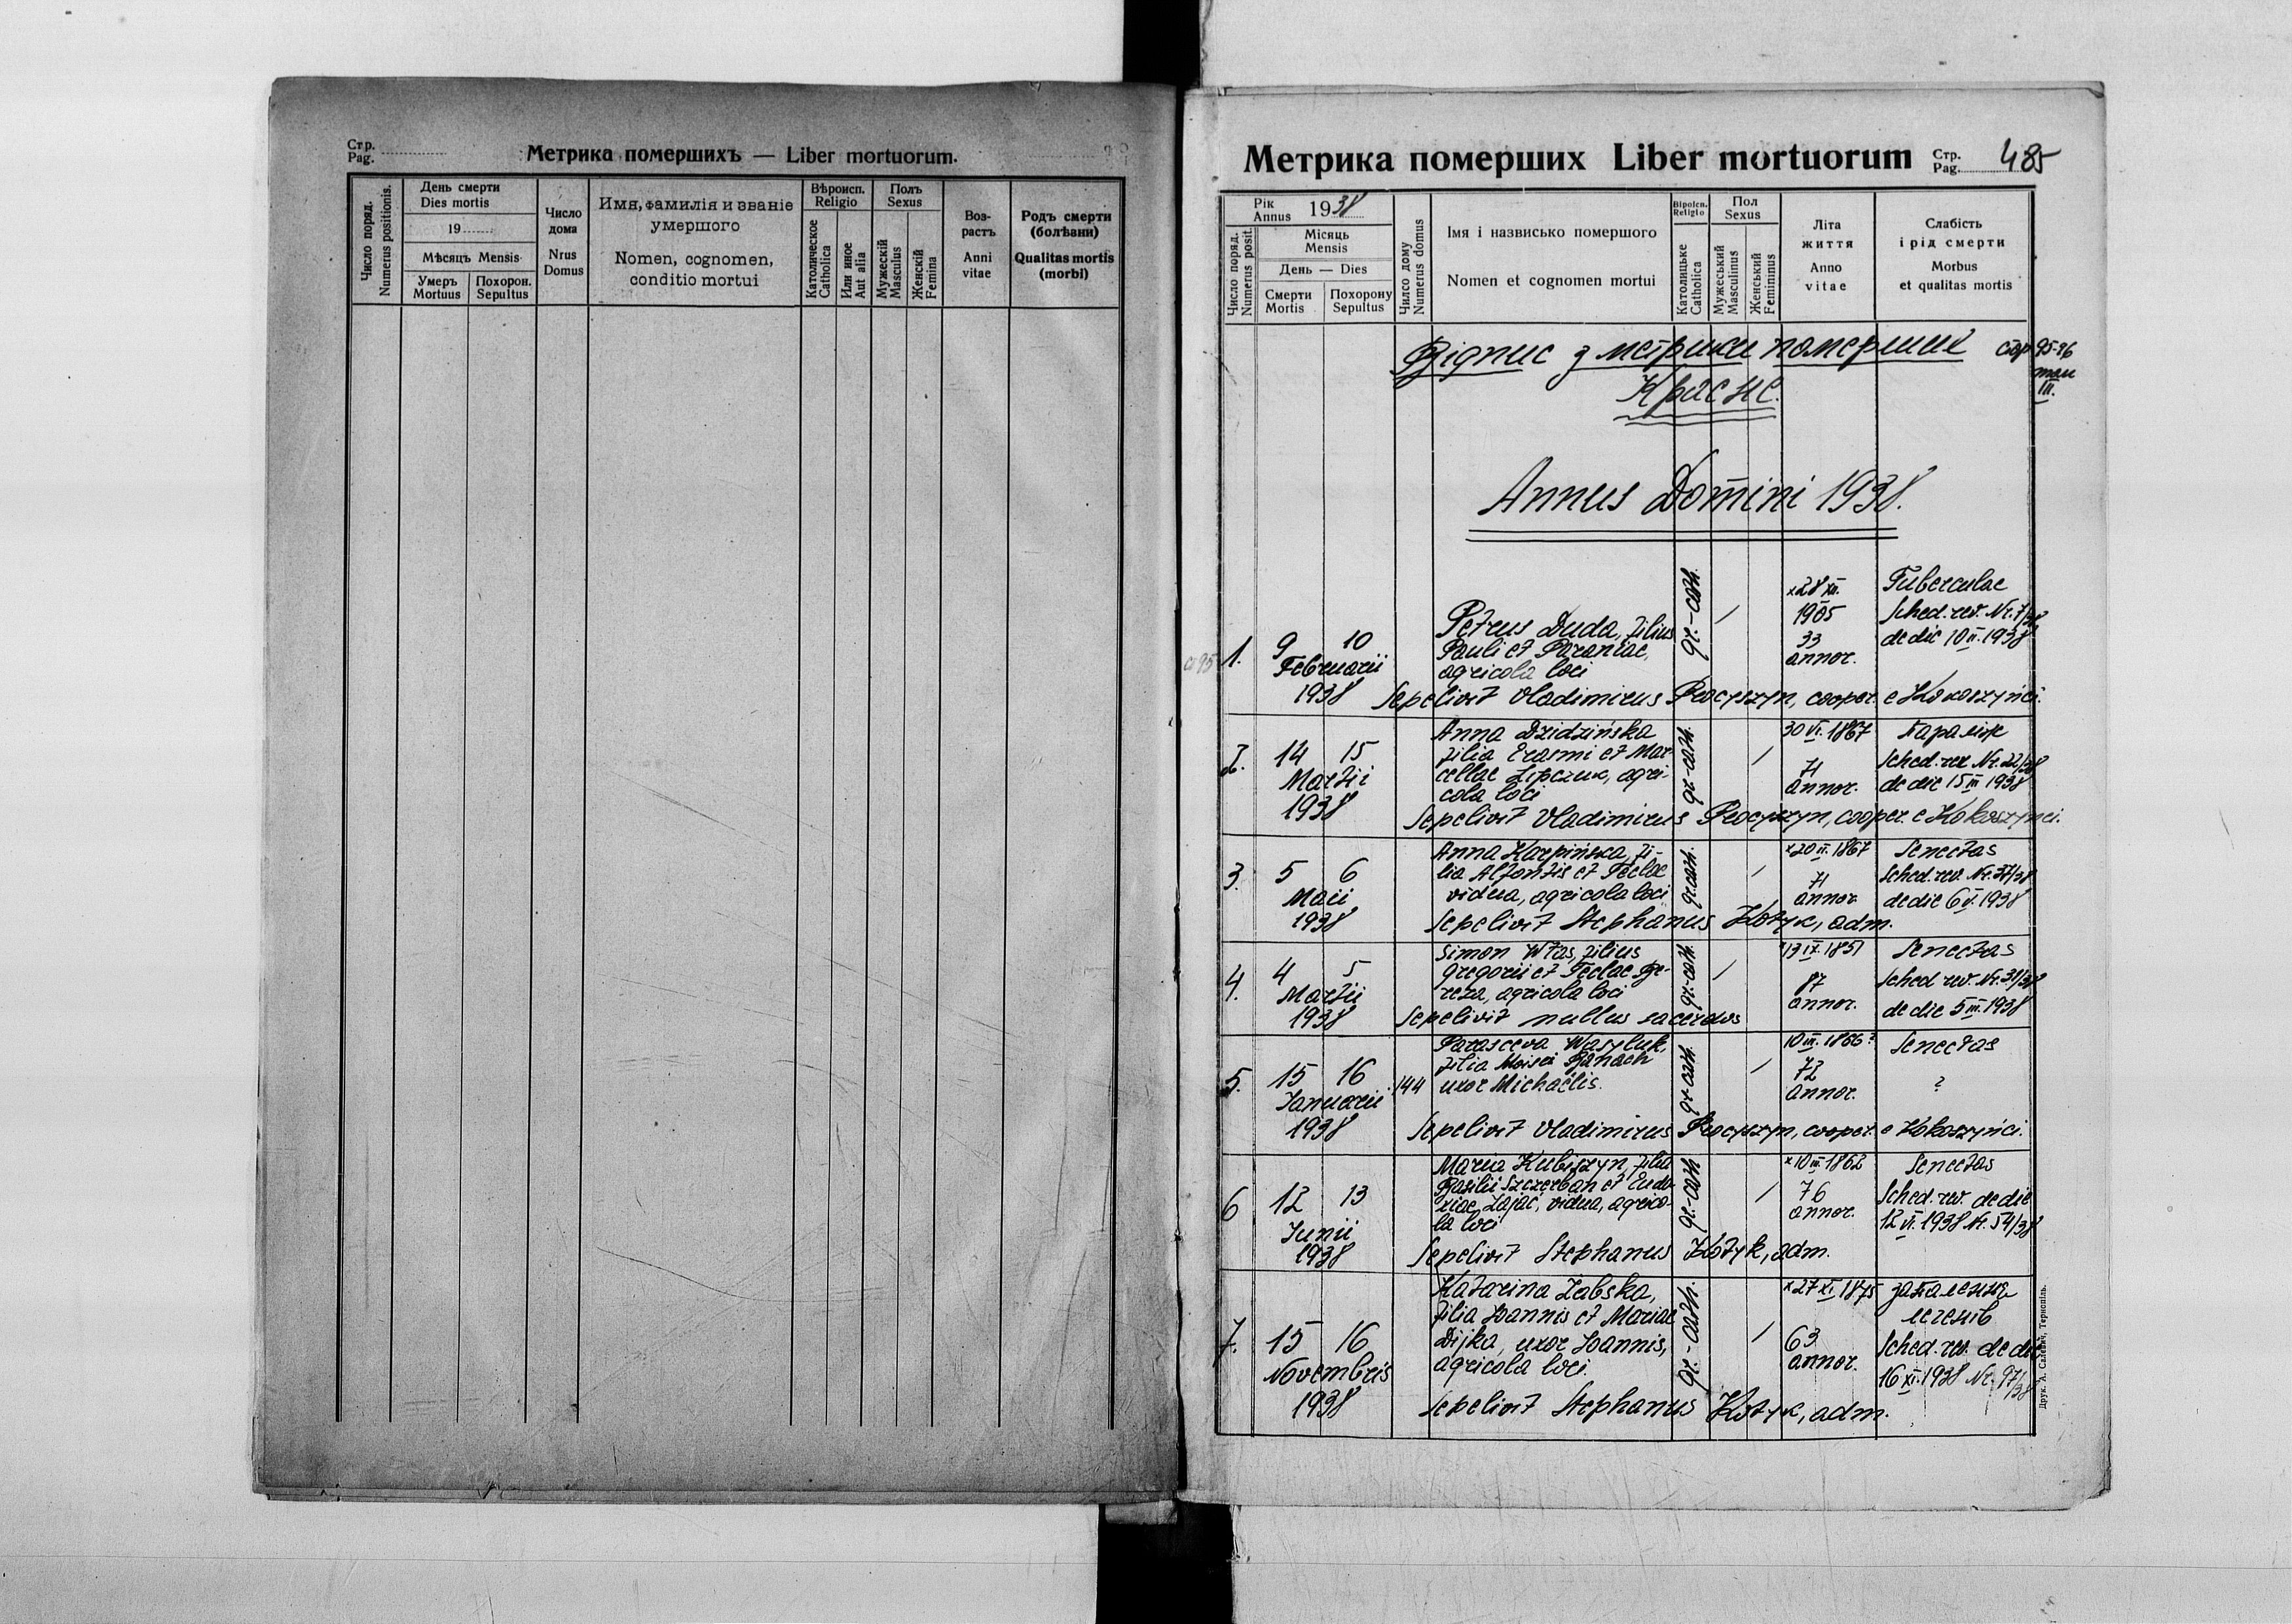 Стр.
Pag.
Метрика помершихъ — Liber mortuorum.
Число поряд.
Numerus positionis.
День смерти
Dies mortis
19
Мѣсяцъ Mensis
Умеръ
Mortuus
Похорон.
Sepultus
Число
дома
Nrus
Domus
Имя, фамилія и званіе
умершого
Nomen, cognomen,
conditio mortui
Вѣроисп.
Religio
Католическое
Catholica
Или иное
Aut alia
Полъ
Sexus
Мужескій
Masculus
Женскій
Femina
Воз-
растъ
Anni
vitae
Родъ смерти
(болѣзни)
Qualitas mortis
(morbi)
Метрика померших Liber mortuorum
Стр.
Pag.
485
Рік
Annus
1938
Число поряд.
Numerus posit.
Місяць
Mensis
День — Dies
Смерти
Mortis
Похорону
Sepultus
Чилсо дому
Numerus domus
Імя і назвисько помершого
Nomen et cognomen mortui
Віроісп.
Religio
Католицьке
Catholica
Пол
Sexus
Мужеський
Masculinus
Женський
Femininus
Літа
життя
Anno
vitae
Слабість
і рід смерти
Morbus
et qualitas mortis
Відпис з метрики померших стор 95-96
том
III.
Красне.
Annus Domini 1938.
1. 9 10
Februarii
1938
Petrus Duda, filius
Pauli et Paraniae,
agricola loci
gr.-cath.
x28 XII.
1905
33
annor.
Tuberculae
Sched. rev. Nr. 7/38
de die 10 II. 1938
Sepelivit Vladimirus Procyszyn, cooper. e Kokoszyńci.
2. 14 15
Martii
1938
Anna Dzidzińska
filia Erasmi et Mar-
cellae Lipczuk, agri-
cola loci
gr.-cath.
30 VI. 1867
71
annor.
Параліж
Sched. rev Nr. 22/38
de die 15 III 1938
Sepelivit Vladimirus Procyszyn, cooper. e Kokoszyńci.
3. 5 6
Maii
1938
Anna Karpińska, fi-
lia Alfontis et Teclae
vidua, agricola loci
gr.cath.
71
annor.
Senectas
Sched. rev. Nr. 37/38
de die 6 V. 1938
Sepelivit Stephanus Kotyk, adm.
4. 4 5
Martii
1938
Simon Witas, filius
Gregorii et Teclae Be-
reza, agricola loci
gr.-cath.
13 IX. 1851
87
annor.
Senectas
Sched rev. Nr. 31/38
de die 5 III. 1938
Sepelivit nullus sacerdos
5. 15 16
Januarii
1938
144
Parasceva Wasyluk,
filia Moisei Banach
uxor Michaëlis.
gr-cath.
10 III. 1866?
72
annor.
Senectas
?
Sepelivit Vladimirus Procyszyn, cooper. e Kokoszyńci.
6 12 13
Junii
1938
Maria Kubiszyn, filia
Basilii Szczerban et Eudo-
xiae Zająć, vidua, agrico-
la loci
gr.-cath
x10 III 1862
76
annor.
Senectas
Sched. rev. de die
12 VI. 1938 Nr. 54/38
Sepelivit Stephanus Kotyk, adm.
7. 15 16
Novembris
1938
Katarina Zabska,
filia Joannis et Mariae
Dijka, uxor Joannis,
agricola loci.
gr.-cath.
x27 XI 1875
63
annor.
запалення
легенів
Sched. rev. de die
16 XI. 1938 Nr. 97/38
Sepelivit Stephanus Kotyk, adm.
Друк. А. Салевич, Тернопіль.